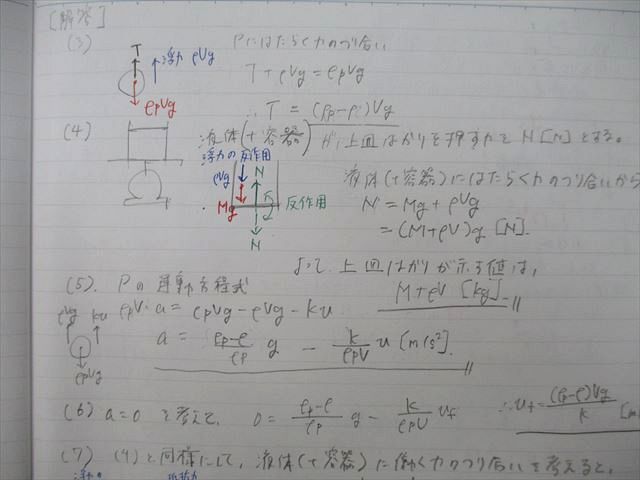 [解答]
(3) Pにはたらく力のつり合い
T 浮力 ρVg
T + ρVg = ρpVg
ρpVg
∴ T = (ρp-ρ)Vg
(4) 液体(+容器)が、上皿はかりを押す力を N [N] とする。
浮力の反作用
ρVg N
Mg 反作用
N
液体(+容器)にはたらく力のつり合いから
N = Mg + ρVg
= (M+ρV)g [N].
よって、上皿はかりが示す値は、
M+ρV [kg]
(5). Pの運動方程式
ρVg ku
ρpVg
ρpV・a = ρpVg - ρVg - ku
a = ρp-ρ/ρp g - k/ρpV u [m/s²].
(6) a=0 を考えて、 0 = ρp-ρ/ρp g - k/ρpV uf ∴ uf = (ρp-ρ)Vg/k [m
(7) (4)と同様にして、液体(+容器)に働く力のつり合いを考えると、